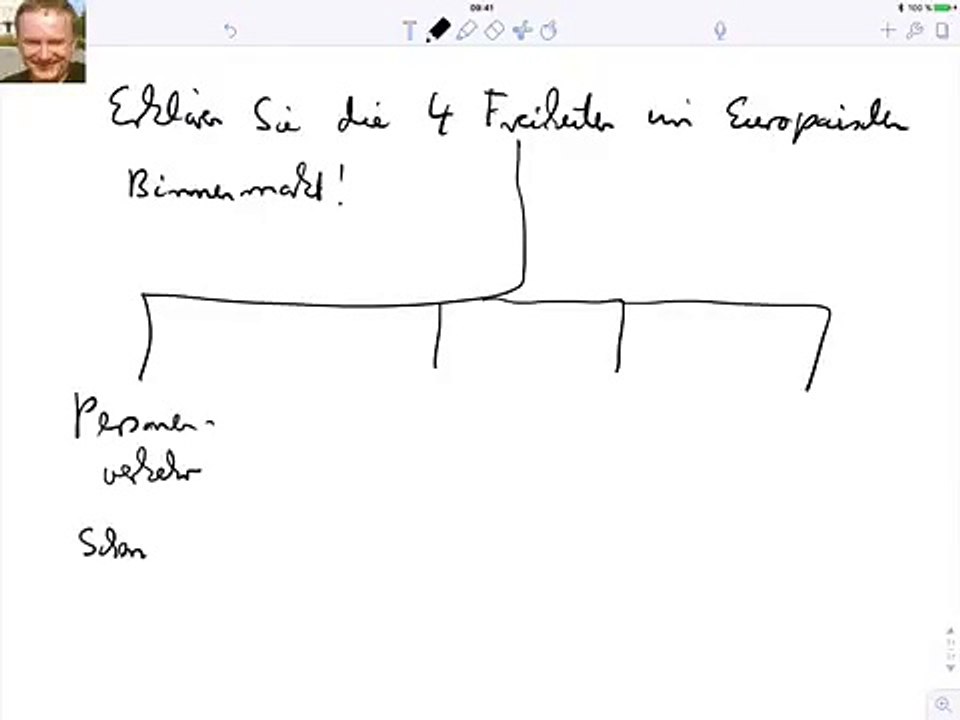 09:41
100 %
T
Erklären Sie die 4 Freiheiten im Europäischen
Binnenmarkt!
Personen-
verkehr
Schen